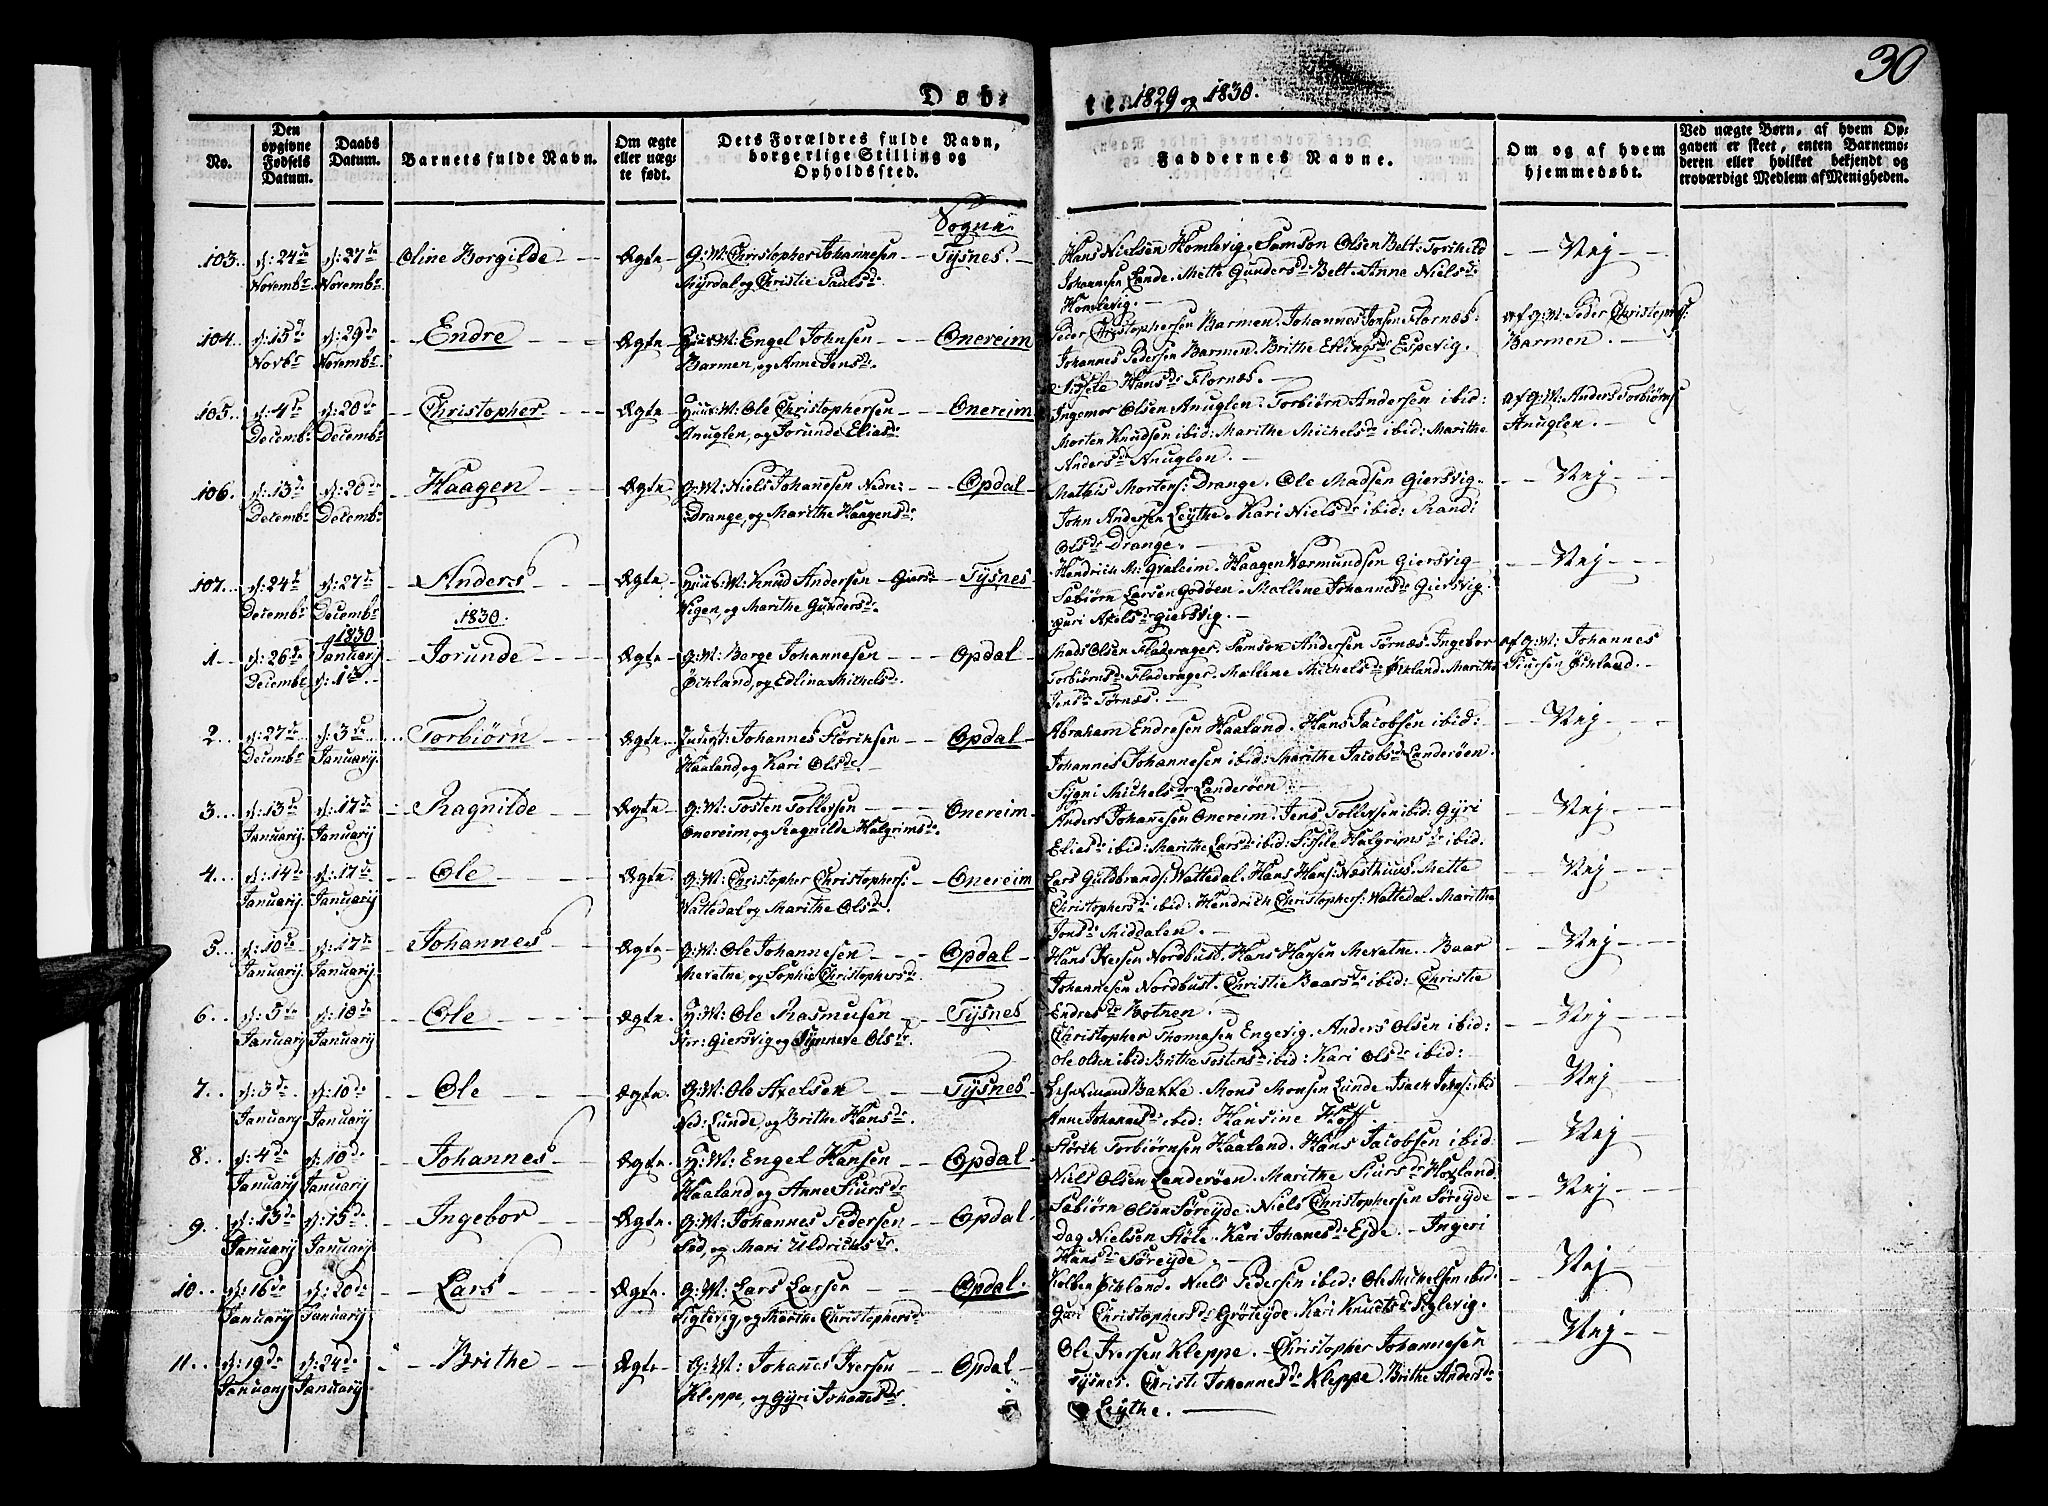 30
Døb-
te 1829 og 1830.
No.
Den opgivne Fødsels Datum.
Daabs Datum.
Barnets fulde Navn.
Om ægte eller uægte født.
Dets Forældres fulde Navn, borgerlige Stilling og Opholdssted.
Faddernes Navne.
Om og af hvem hjemmedøbt.
Ved uægte Børn, af hvem Opgaven er skeet, enten Barnemoderen eller hvilket bekjendt og troværdigt Medlem af Menigheden.
Sogn
103. d: 24de Novembr d: 27de Novembr Oline Borgilde Ægte G:M: Christopher Johannesen Tysnes.
Myrdal og Christie Paulsdr
Hans Nielsen Homlevig. Samson Olsen Belt: Torkild
Johannesen Lande. Mette Gundersdr Belt. Anne Nielsdr
Homlevig.
Nej
104. d: 15de Novbr d: 29de Novembr. Endre Ægte Huus M: Engel Johnsen Onereim
Barmen, og Anne Jensdr.
Peder Christophersen Barmen. Johannes Jonsen Flornæs.
Johannes Pedersen Barmen. Brithe Etlingsdr Espevig.
Sisele Hansdr Flornæs.
af G:M: Peder Christophers:
Barmen.
105. d: 4de Decembr d: 20de Decembr Christopher Ægte Huus: M: Ole Christophersen Onereim
Anuglen, og Jorunde Eliasdr
Ingemor Olsen Anuglen. Torbiørn Andersen ibid:
Morten Knudsen ibid: Marithe Michelsdr ibid: Marithe
Andersdr Anuglen.
af G:M: Anders Torbiørns
Anuglen.
106. d: 13de Decembr d: 26de Decembr Haagen Ægte G:M: Niels Johanesen Nedre: Opdal
Drange, og Marithe Haagensdr.
Mathis Mortens: Drange. Ole Madsen Giersvig
John Andersen Leythe. Kari Nielsdr ibid: Randi
Olsdr Drange.
Nej
107. d: 24de Decembr d: 27de Decembr Anders Ægte Huus: M: Knud Andersen Giers- Tysnes
vigen, og Marithe Gundersdr.
Hendrich M: Graleim. Haagen Værmundsen Giersvig
Sæbiørn Larsen Godøen. Mallene Johannesdr Giersvig.
Guri Axelsdr Giersvig.
Nej
1830.
1830
1 d: 26de Decembr Januarij d: 1ste Jorunde Ægte G:M: Børge Johannesen Opdal
Økland, og Edlina Michelsdr.
Mads Olsen Fladerager. Samson Andersen Tørnæs. Ingebor
Torbiørnsdr Fladerager. Mallene Michelsdr Økland. Marithe
Jensdr Tørnæs.
af G:M: Johannes
Siursen Økland.
2 d: 27de Decembr d: 3de Januarij. Torbiørn Ægte Johannes Størcksen Opdal
Haaland, og Kari Olsdr.
Abraham Endresen Haaland. Hans Jacobsen ibid:
Johannis Johannesen ibid: Marithe Jacobsdr Landerøen.
Sygni Michelsdr Landerøen.
Nej
3. d: 13de Januarij. d: 17de Januarij Ragnilde Ægte G:M: Tosten Tollefsen Onereim
Onereim, og Ragnilde Halgrimsdr
Anders Johanesen Onereim. Jens Tollefsen ibid: Gyri
Eliasdr ibid: Marithe Larsdr ibid: Sissile Halgrimsdr ibid:
Nej
4. d: 14de Januarij. d: 17de Januarij Ole Ægte. G:M: Christopher Christophers: Onereim
Vattedal og Marithe Olsdr.
Lars Guldbrands: Vattedal. Hans Hans: Næsthuus. Mette
Christophersdr ibid: Hendrich Christophers: Vattedal. Marithe
Jonsdr Middalen.
Nej
5. d: 10de Januarij d: 17de Januarij. Johannes Ægte G:M: Ole Johannesen Opdal
Mevatne, og Sophie Christophersdr.
Hans Iversen Nordbust. Hans Hansen Mevatne. Baar
Johannesen Nordbust. Christie Baarsdr ibid: Christie
Endresdr Botnen.
Nej
6. d: 5te Januarij d: 10de Januarij. Ole Ægte. H:M: Ole Rasmusen Tysnes
Stor: Giersvig og Synneve Olsdr.
Christopher Thomasen Engevig. Anders Olsen ibid:
Ole Olsen ibid: Brithe Tostensdr ibid: Kari Olsdr ibid:
Nej
7. d: 3de Januarij d: 10de Januarij Ole Ægte. G:M: Ole Axelsen Tysnes
Ned: Lunde, og Brithe Hansdr.
Bakke. Mons Monsen Lunde. Isach Johs: ibid
Anne Johannesdr ibid: Hansine Hoff
Nej
8. d: 4de Januarij d: 10de Januarij Johannes Ægte. H:M: Engel Hansen Opdal
Haaland og Anne Siursdr
Størck Torbiørnsen Haaland. Hans Jacobsen ibid:
Niels Olsen Landerøen. Marithe Siursdr Høyland
Nej
9. d: 13de Januarij d: 15de Januarij. Ingebor Ægte. G:M: Johannes Pedersen Opdal
Sød, og Mari Uldrichsdr.
Sæbiørn Olsen Søreyde. Niels Christophersen Søreyde
Dag Nielsen Støle. Kari Johanesdr Ejde. Ingeri
Hansdr Søreyde
Nej
10. d: 16de Januarij d: 20de Januarij Lars Ægte. G:M: Lars Larsen Opdal.
Siglevig, og Marthe Christophersdr
Kolben Økland. Niels Pedersen ibid: Ole Michelsen ibid:
Guri Christophersdr Grøteyde. Kari Knudsdr Siglevig.
Nej
11. d: 19de Januarij d: 24de Januarij Brithe Ægte G:M: Johannes Iversen Opdal
Kleppe, og Gyri Johannesdr.
Ole Iversen Kleppe. Christopher Johannesen
Tysnes. Christi Johannesdr Kleppe. Brithe Andersdr
Leythe.
Nej